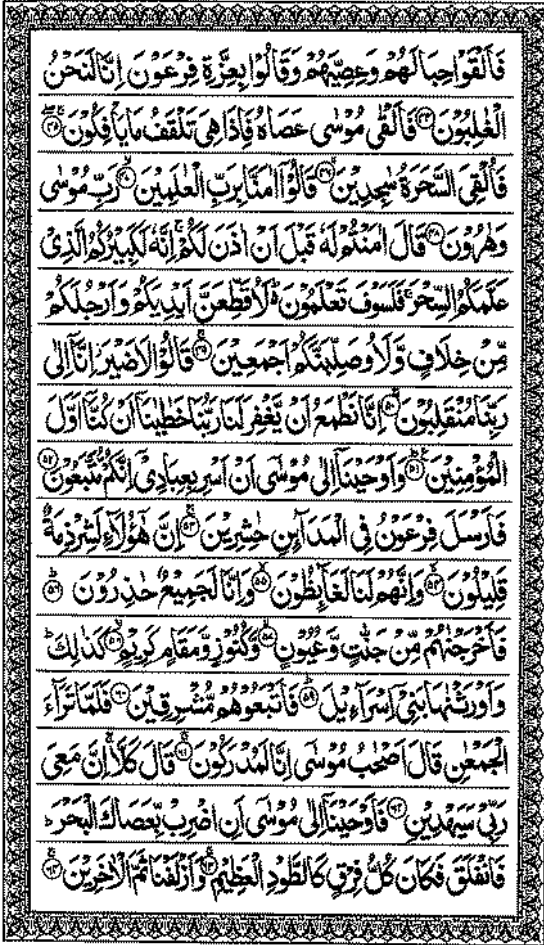 فَاَلْقَوْا حِبَالَهُمْ وَعِصِيَّهُمْ وَقَالُوْا بِعِزَّةِ فِرْعَوْنَ اِنَّا لَنَحْنُ
الْغٰلِبُوْنَ ﴿۴۴﴾ فَاَلْقٰى مُوْسٰى عَصَاهُ فَاِذَا هِيَ تَلْقَفُ مَا يَاْفِكُوْنَ ﴿۴۵﴾
فَاُلْقِيَ السَّحَرَةُ سٰجِدِيْنَ ﴿۴۶﴾ قَالُوْٓا اٰمَنَّا بِرَبِّ الْعٰلَمِيْنَ ﴿۴۷﴾ رَبِّ مُوْسٰى
وَهٰرُوْنَ ﴿۴۸﴾ قَالَ اٰمَنْتُمْ لَهٗ قَبْلَ اَنْ اٰذَنَ لَكُمْ ۚ اِنَّهٗ لَكَبِيْرُكُمُ الَّذِيْ
عَلَّمَكُمُ السِّحْرَ ۚ فَلَسَوْفَ تَعْلَمُوْنَ ؕ لَاُقَطِّعَنَّ اَيْدِيَكُمْ وَاَرْجُلَكُمْ
مِّنْ خِلَافٍ وَّلَاُوصَلِّبَنَّكُمْ اَجْمَعِيْنَ ﴿۴۹﴾ قَالُوْا لَا ضَيْرَ ۡ اِنَّآ اِلٰى
رَبِّنَا مُنْقَلِبُوْنَ ﴿۵۰﴾ اِنَّا نَطْمَعُ اَنْ يَّغْفِرَ لَنَا رَبُّنَا خَطٰيٰنَآ اَنْ كُنَّآ اَوَّلَ
الْمُؤْمِنِيْنَ ﴿۵۱﴾ وَاَوْحَيْنَآ اِلٰى مُوْسٰٓى اَنْ اَسْرِ بِعِبَادِيْٓ اِنَّكُمْ مُّتَّبَعُوْنَ ﴿۵۲﴾
فَاَرْسَلَ فِرْعَوْنُ فِي الْمَدَآئِنِ حٰشِرِيْنَ ﴿۵۳﴾ اِنَّ هٰٓؤُلَآءِ لَشِرْذِمَةٌ
قَلِيْلُوْنَ ﴿۵۴﴾ وَاِنَّهُمْ لَنَا لَغَآئِظُوْنَ ﴿۵۵﴾ وَاِنَّا لَجَمِيْعٌ حٰذِرُوْنَ ﴿۵۶﴾
فَاَخْرَجْنٰهُمْ مِّنْ جَنّٰتٍ وَّعُيُوْنٍ ﴿۵۷﴾ وَّكُنُوْزٍ وَّمَقَامٍ كَرِيْمٍ ﴿۵۸﴾ كَذٰلِكَ ؕ
وَاَوْرَثْنٰهَا بَنِيْٓ اِسْرَآءِيْلَ ﴿۵۹﴾ فَاَتْبَعُوْهُمْ مُّشْرِقِيْنَ ﴿۶۰﴾ فَلَمَّا تَرَآءَ
الْجَمْعٰنِ قَالَ اَصْحٰبُ مُوْسٰٓى اِنَّا لَمُدْرَكُوْنَ ﴿۶۱﴾ قَالَ كَلَّا ۚ اِنَّ مَعِيَ
رَبِّيْ سَيَهْدِيْنِ ﴿۶۲﴾ فَاَوْحَيْنَآ اِلٰى مُوْسٰٓى اَنِ اضْرِبْ بِّعَصَاكَ الْبَحْرَ ؕ
فَانْفَلَقَ فَكَانَ كُلُّ فِرْقٍ كَالطَّوْدِ الْعَظِيْمِ ﴿۶۳﴾ وَاَزْلَفْنَا ثَمَّ الْاٰخَرِيْنَ ﴿۶۴﴾